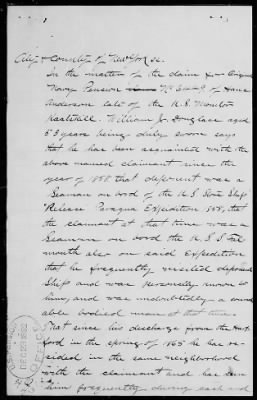 City & County of New York ss.
In the matter of the claim for Original
Navy Pension of
Anderson late of the U.S. Monitor
William J. Douglass aged
53 years being duly sworn says
that he has been acquainted with the
above named claimant since the
year of 1858 that deponent was a
Seaman on board of the U.S. Store Ship
Release Paragua Expedition 1858, that
the claimant at that time was a
Seaman on board the U.S.S. Fal
mouth also on said Expedition
that he frequently visited deponents
Ship and was personally known to
him, and was undoubtedly a sound
able bodied man at that time.
That since his discharge from the Hart
ford in the spring of 1865 he has re-
sided in the same neighborhood
with the claimant and has seen
him frequently during each and